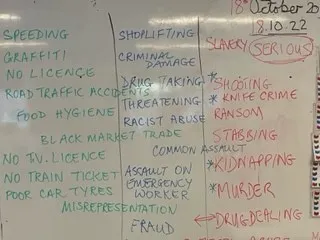 18th October 20
18.10.22
SPEEDING
GRAFFITI
NO LICENCE
ROAD TRAFFIC ACCIDENTS
FOOD HYGIENE
BLACK MARKET TRADE
NO TV. LICENCE
NO TRAIN TICKET
POOR CAR TYRES
MISREPRESENTATION
SHOPLIFTING
CRIMINAL
DAMAGE
DRUG TAKING
THREATENING
RACIST ABUSE
COMMON ASSAULT
ASSAULT ON
EMERGENCY
WORKER
FRAUD
SLAVERY SERIOUS
* SHOOTING
* KNIFE CRIME
RANSOM
STABBING
* KIDNAPPING
* MURDER
↔ DRUG DEALING